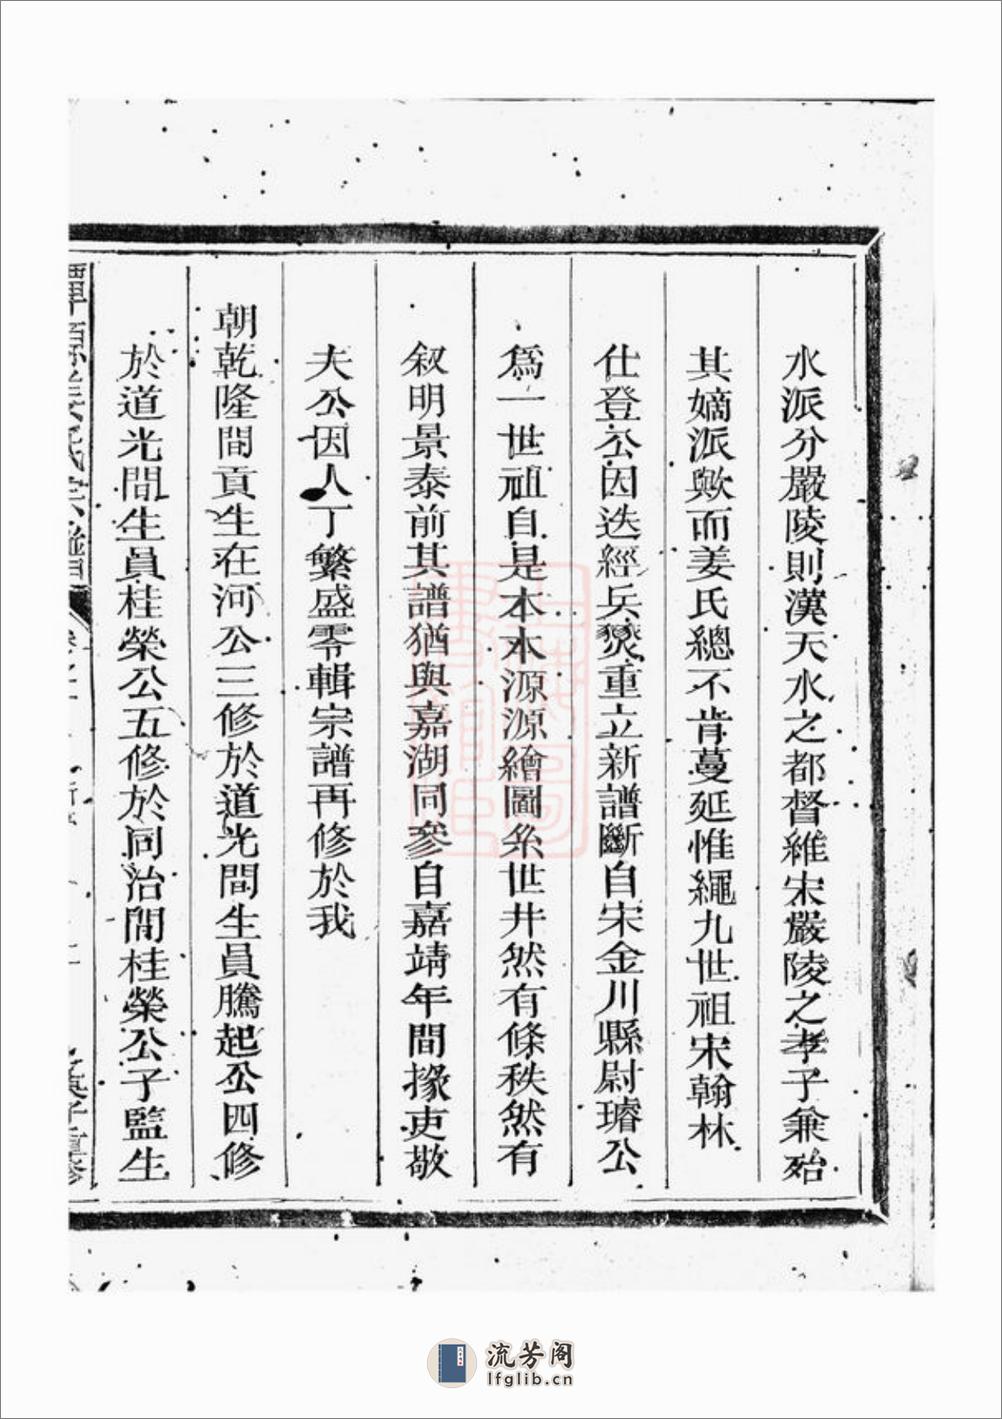 水派分嚴陵則漢天水之都督維宋嚴陵之孝子兼殆
其嫡派歟而姜氏總不肯蔓延惟繩九世祖宋翰林
仕登公因迭經兵燹重立新譜斷自宋金川縣尉璿公
爲一世祖自是本本源源繪圖糸世井然有條秩然有
叙明景泰前其譜猶與嘉湖同參自嘉靖年間掾吏敬
夫公因人丁繁盛零輯宗譜再修於我
朝乾隆間貢生在河公三修於道光間生員騰起公四修
於道光間生員桂榮公五修於同治間桂榮公子監生
姜氏宗譜
流芳阁
lfglib.cn